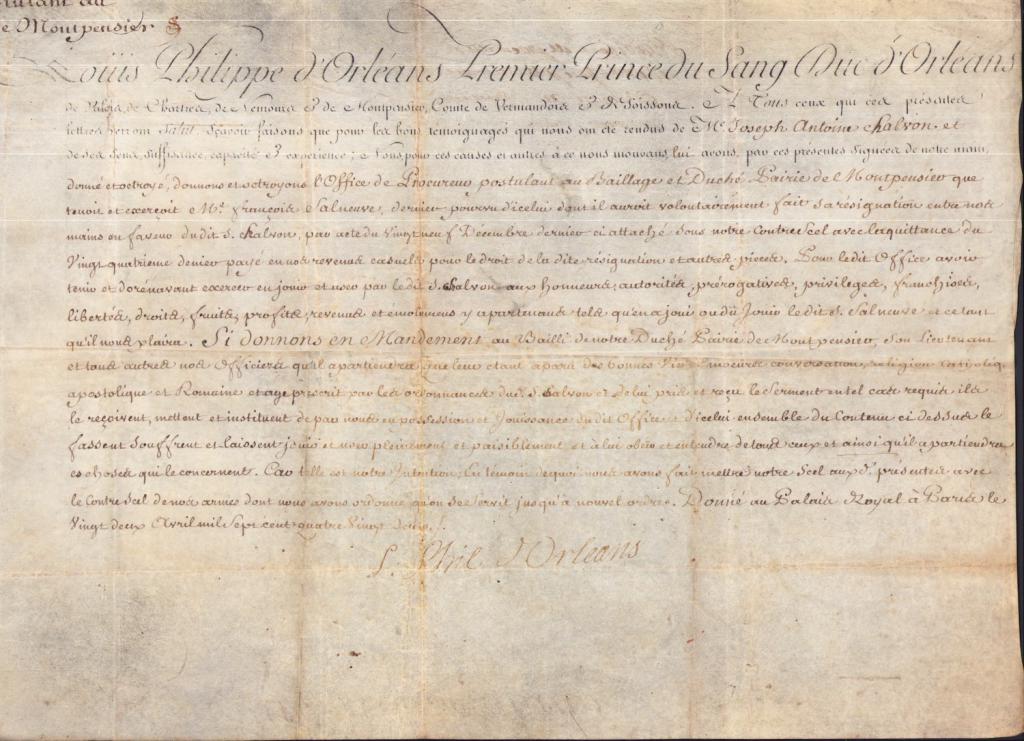 postulant au
e Montpensier
Louis Philippe d'Orléans Premier Prince du Sang Duc d'Orléans
de Valois, de Chartres, de Nemours & de Montpensier, Comte de Vermandois & de Soissons. A Tous ceux qui ces présentes
lettres verront Salut, sçavoir faisons que pour les bons témoignages qui nous ont été rendus de Me. Joseph Antoine Salvon, et
de ses sens, suffisance, capacité & experience; Nous, pour ces causes et autres à ce nous mouvans, lui avons, par ces présentes signées de notre main,
donné et octroyé, donnons et octroyons l'Office de Procureur postulant au Bailliage et Duché Pairie de Montpensier que
tenoit et exerçoit Me. françois Salneuve, dernier pourvu d'icelui dont il auroit volontairement fait sa résignation entre nos
mains en faveur dudit S. Salvon, par acte du Vingt neuf Décembre dernier ci attaché sous notre Contre scel avec la quittance du
Vingt quatrieme denier payé en nos revenus casuels pour le droit de la dite résignation et autres pieces. Pour ledit Office avoir
tenir et dorénavant exercer en jouir et user par ledit S. Salvon aux honneurs, autorités, prérogatives, privileges, franchises,
libertés, droits, fruits, profits, revenus et émolumens y apartenans tels qu'en a joui ou dû Jouir le dit S. Salneuve et ce tant
qu'il nous plaira. Si donnons en Mandement au Bailli de notre Duché Pairie de Montpensier, son Lieutenant
et tous autres nos Officiers qu'il apartiendra que leur étant aparu des bonnes Vie & moeurs conversation, religion Catholiq.
apostolique et Romaine et age prescrit par les ordonnances dud. S. Salvon et de lui pris et reçu le Serment en tel cas requis ils
le reçoivent, mettent et instituent de par nous en possession et Jouissance dudit Office et d'icelui ensemble du Contenu ci dessus le
fassent souffrent et laissent jouir et user pleinement et paisiblement et à lui obéir et entendre de tous ceux et ainsi qu'il apartiendra
es choses qui le concernent. Car telle est notre Intention; En témoin de quoi nous avons fait mettre notre Scel aux d. présentes avec
le Contre scel de nos armes dont nous avons ordonné qu'on se servit jusqu'à nouvel ordre. Donné au Palais Royal à Paris le
Vingt deux Avril mil Sept cent quatre Vingt deux.
L. Phil d'Orleans